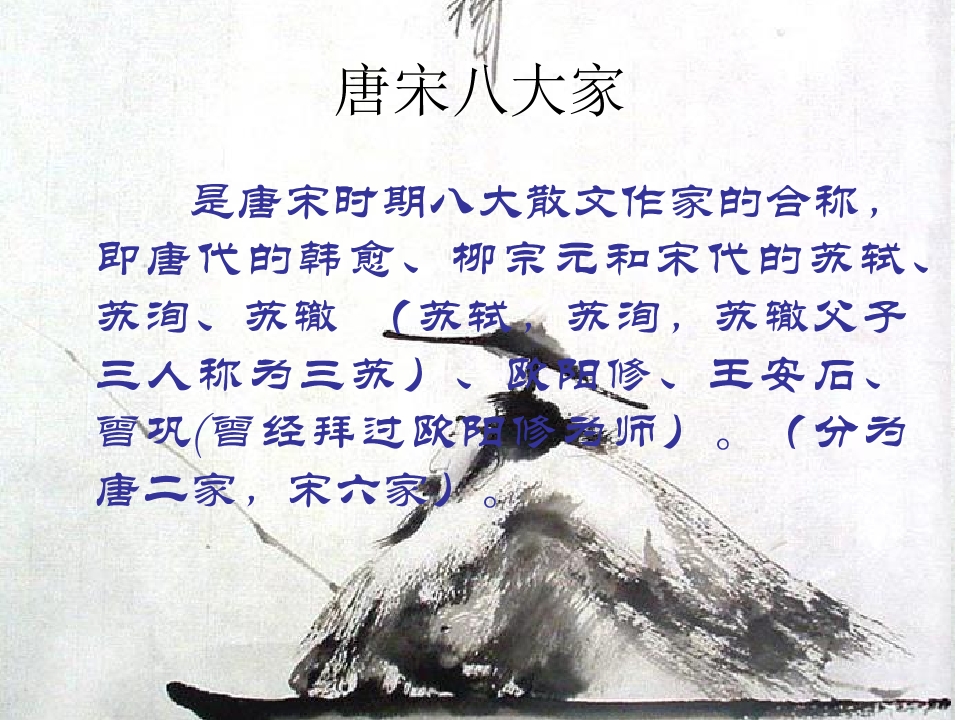 唐宋八大家
是唐宋时期八大散文作家的合称，
即唐代的韩愈、柳宗元和宋代的苏轼、
苏洵、苏辙 （苏轼，苏洵，苏辙父子
三人称为三苏）、欧阳修、王安石、
曾巩(曾经拜过欧阳修为师）。（分为
唐二家，宋六家）。